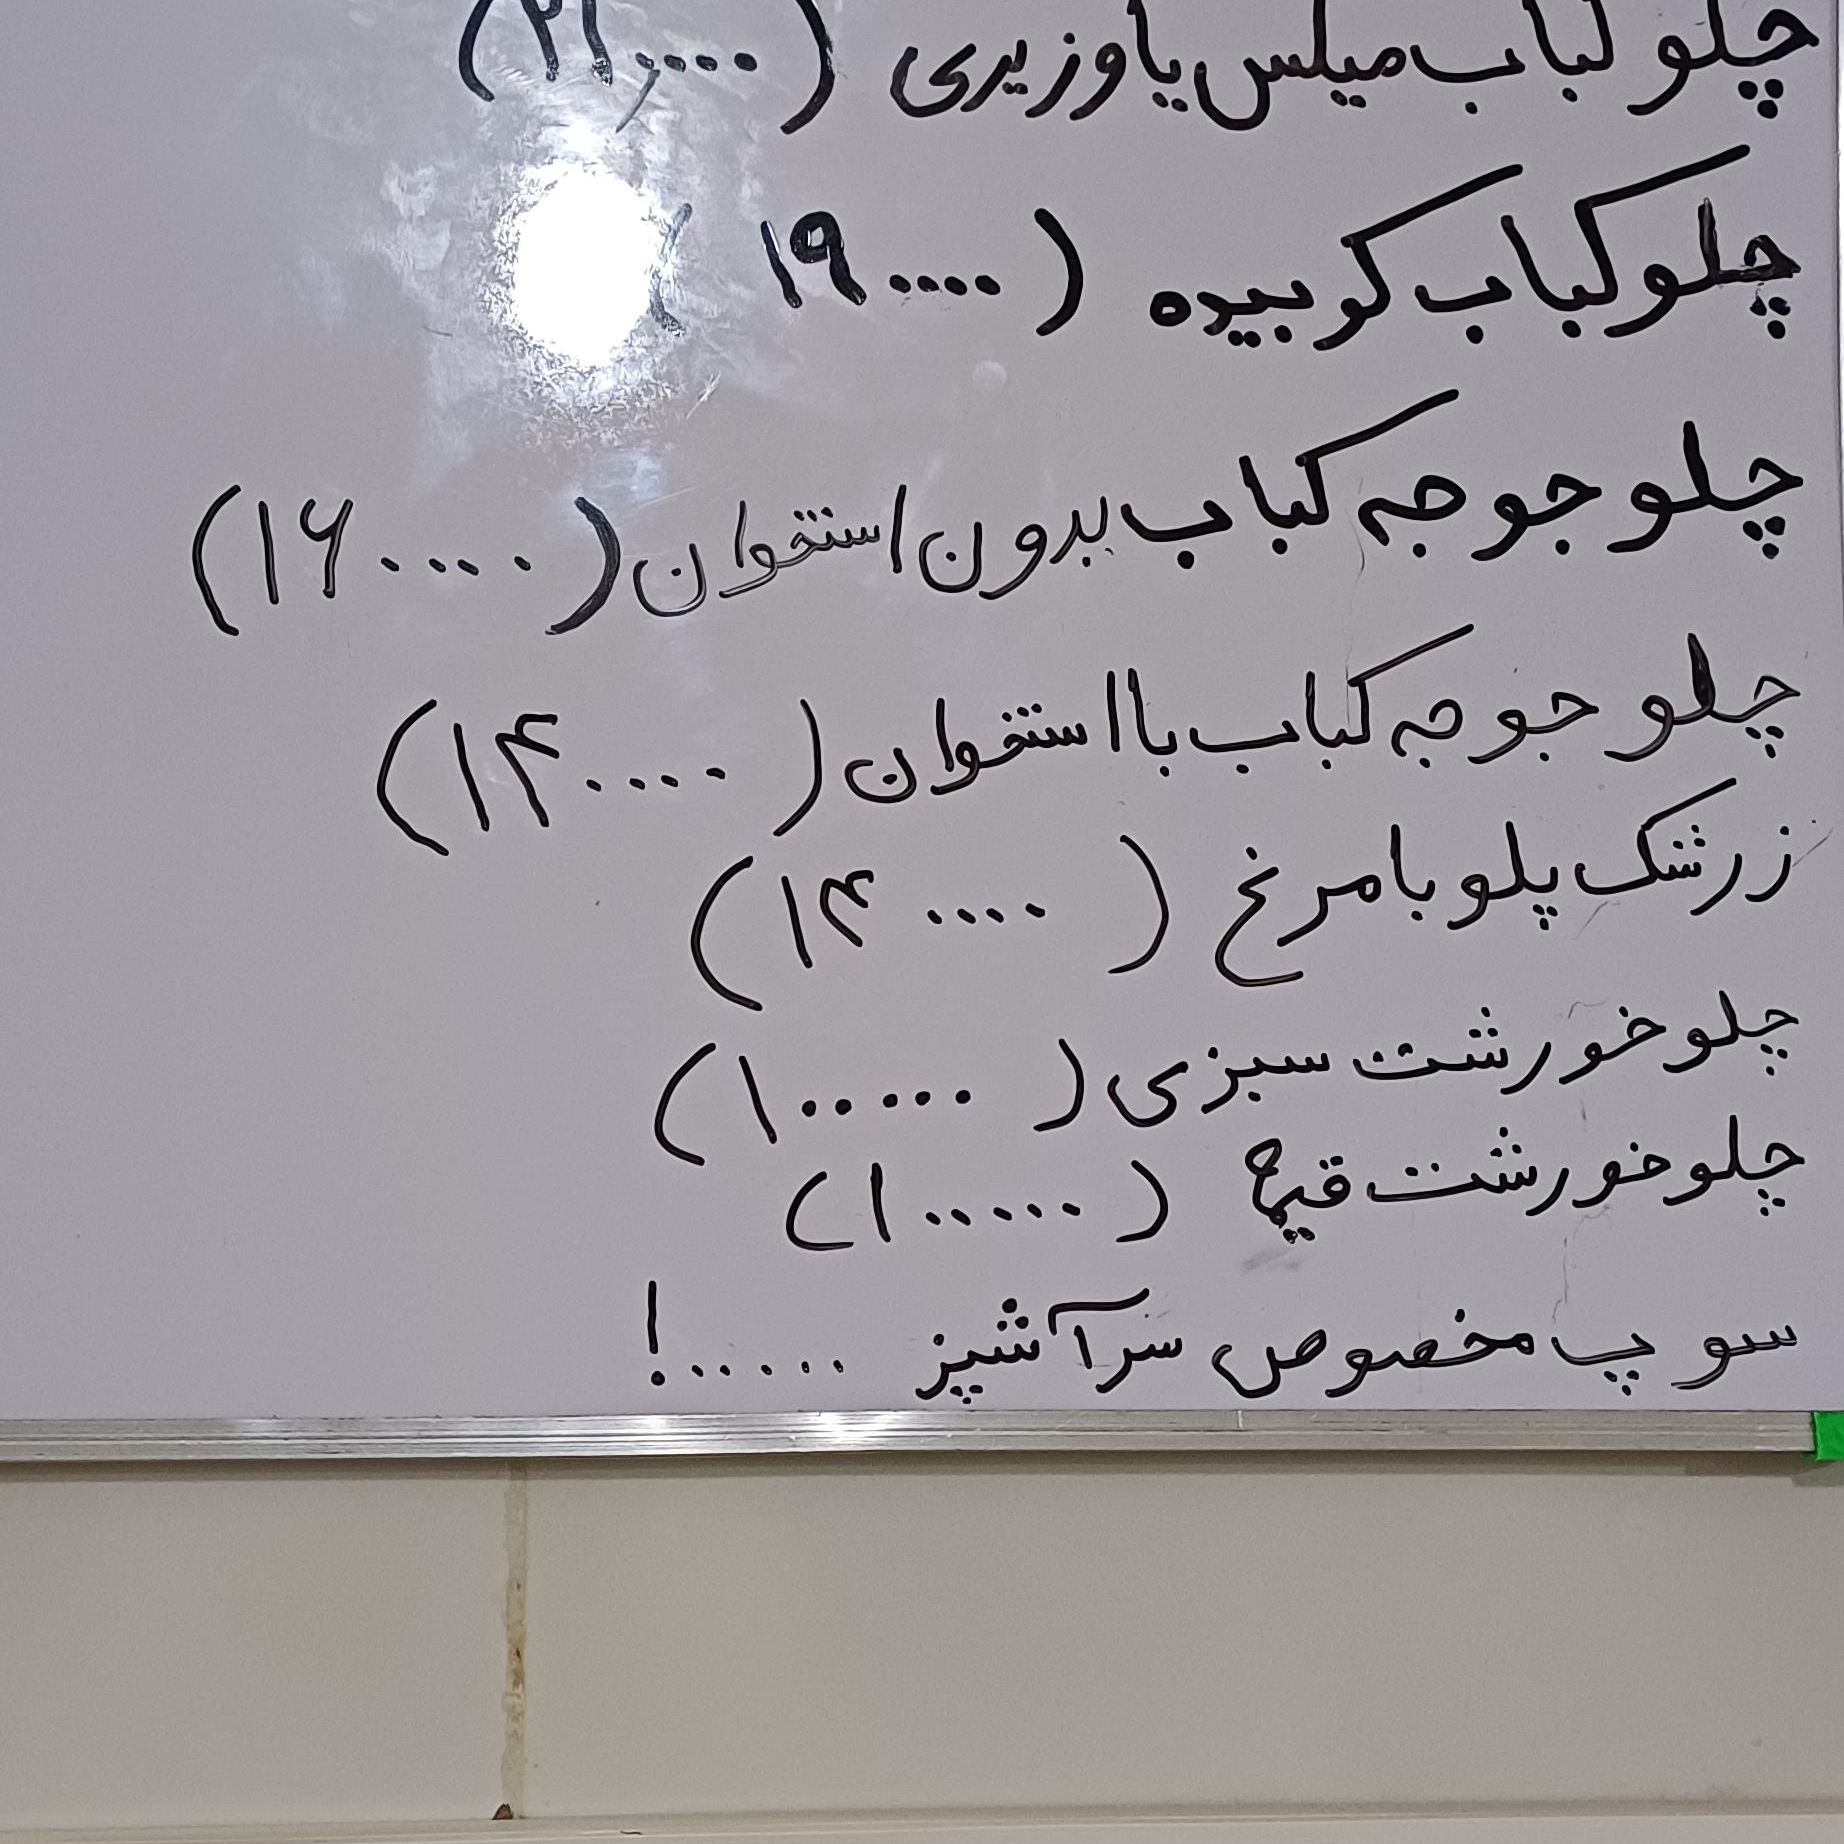 چلو کباب میکس یا وزیری (۲۱,۰۰۰۰)
چلو کباب کوبیده (۱۹۰۰۰۰)
چلو جوجه کباب بدون استخوان (۱۶۰۰۰۰)
چلو جوجه کباب با استخوان (۱۴۰۰۰۰)
زرشک پلو با مرغ (۱۴۰۰۰۰)
چلو خورشت سبزی (۱۰۰۰۰۰)
چلو خورشت قیمه (۱۰۰۰۰۰)
سوپ مخصوص سرآشپز ......!